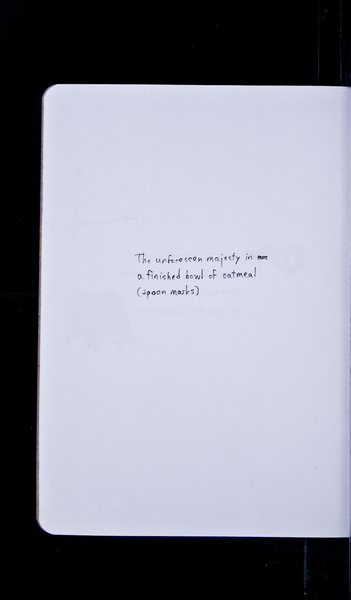 The unforeseen majesty in
a finished bowl of oatmeal
(spoon marks)